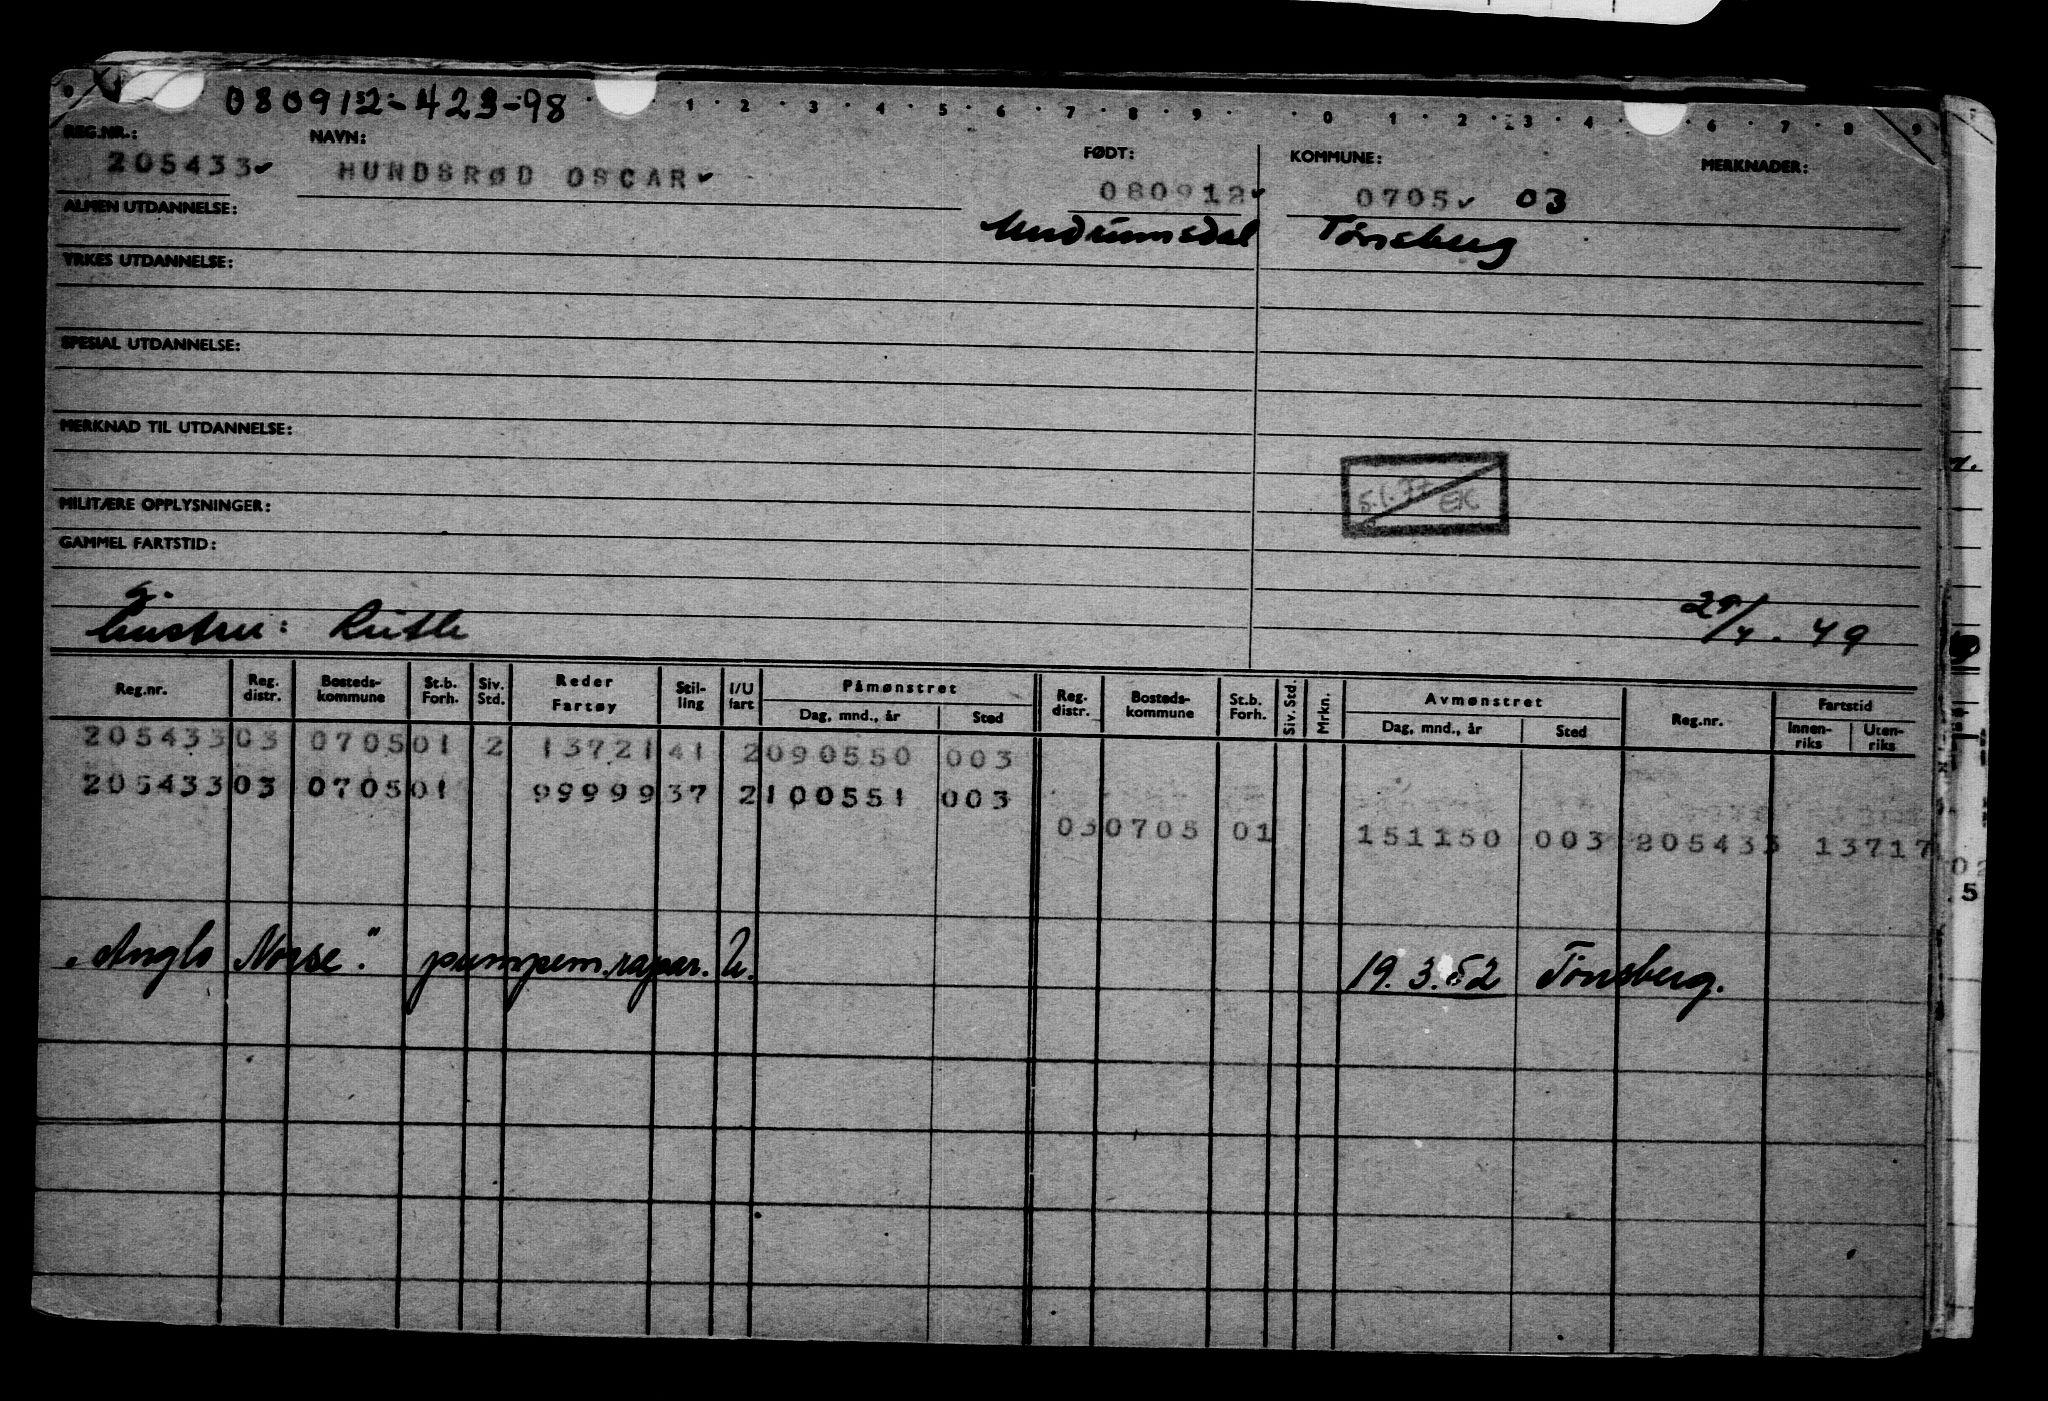 080912-423-98
1 2 3 4 5 6 7 8 9 0 1 2 3 4 6 7 8 9
REG.NR.: NAVN: FØDT: KOMMUNE: MERKNADER:
205433 HUNDSRØD OSCAR 080912 0705 03
ALMEN UTDANNELSE: Undrumsdal Tönsberg
YRKES UTDANNELSE:
SPESIAL UTDANNELSE:
MERKNAD TIL UTDANNELSE:
5.1.77 EK
MILITÆRE OPPLYSNINGER:
GAMMEL FARTSTID:
g.
hustru: Ruth 29/4.49
Reg.nr. Reg. distr. Bosteds- kommune St.b. Forh. Siv. Std. Reder Fartøy Stil- ling I/U fart Påmønstret Dag, mnd., år Sted Reg. distr. Bosteds- kommune St.b. Forh. Siv. Std. Mrkn. Avmønstret Dag, mnd., år Sted Reg.nr. Fartstid Innen- riks Uten- riks
205433 03 0705 01 2 13721 41 2 090550 003
205433 03 0705 01 99999 37 2 100551 003
03 0705 01 151150 003 205433 13717
"Anglo Norse". pumpem.repar. U. 19.3.52 Tönsberg.